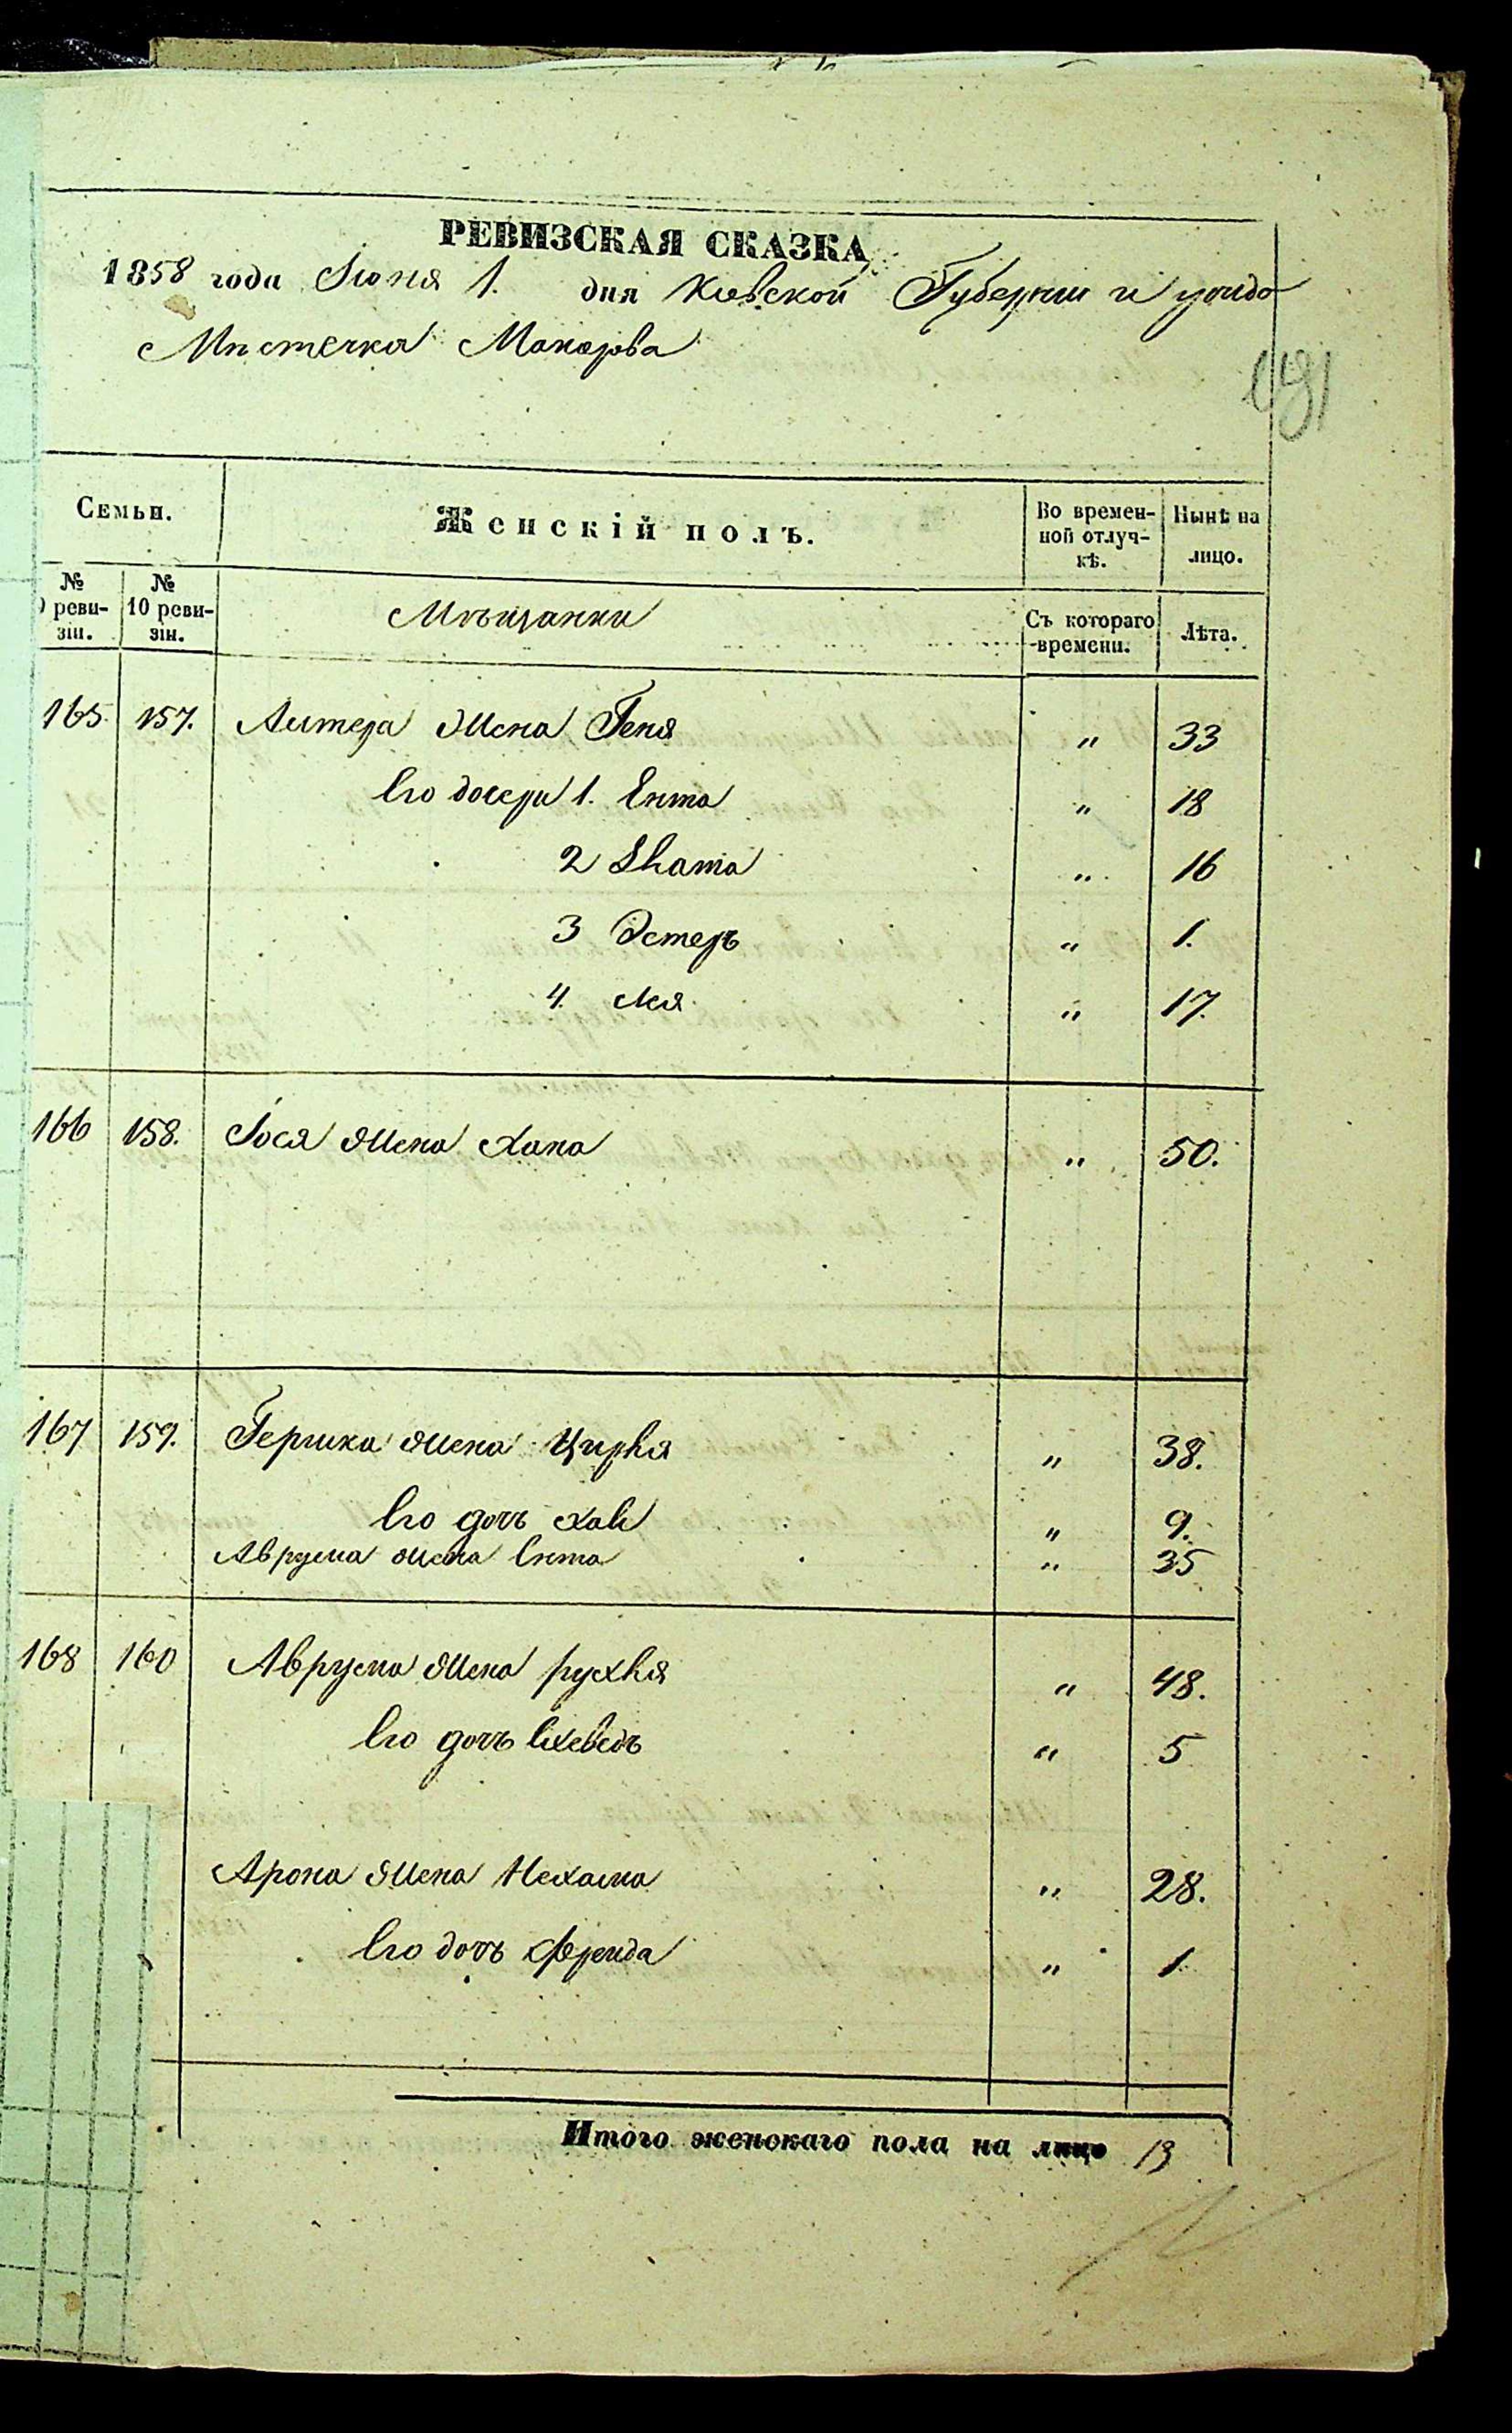 РЕВИЗСКАЯ СКАЗКА
1858 года Іюня 1. дня Кіевской Губерніи и уѣзда
Мѣстечка Макарова
191
Семьи. Женскій полъ. Во времен-ной отлуч-кѣ. Нынѣ на лицо.
№ 9 реви-зіи. № 10 реви-зіи. Мѣщанки Съ котораго времени. Лѣта.
165. 157. Литера жена Геня " 33
Его дочери 1. Ента " 18
2 Злата " 16
3 Эстеръ " 1.
4. Лея " 17.
166 158. Іося жена Хана " 50.
167 159. Гершка жена Цирля " 38.
Его дочь Хая " 9.
Аврума жена Ента " 35
168 160 Аврума жена Рухля " 48.
Его дочь Ехеведъ " 5
Арона жена Нехама " 28.
Его дочь Фрейда " 1
Итого женскаго пола на лицо 13